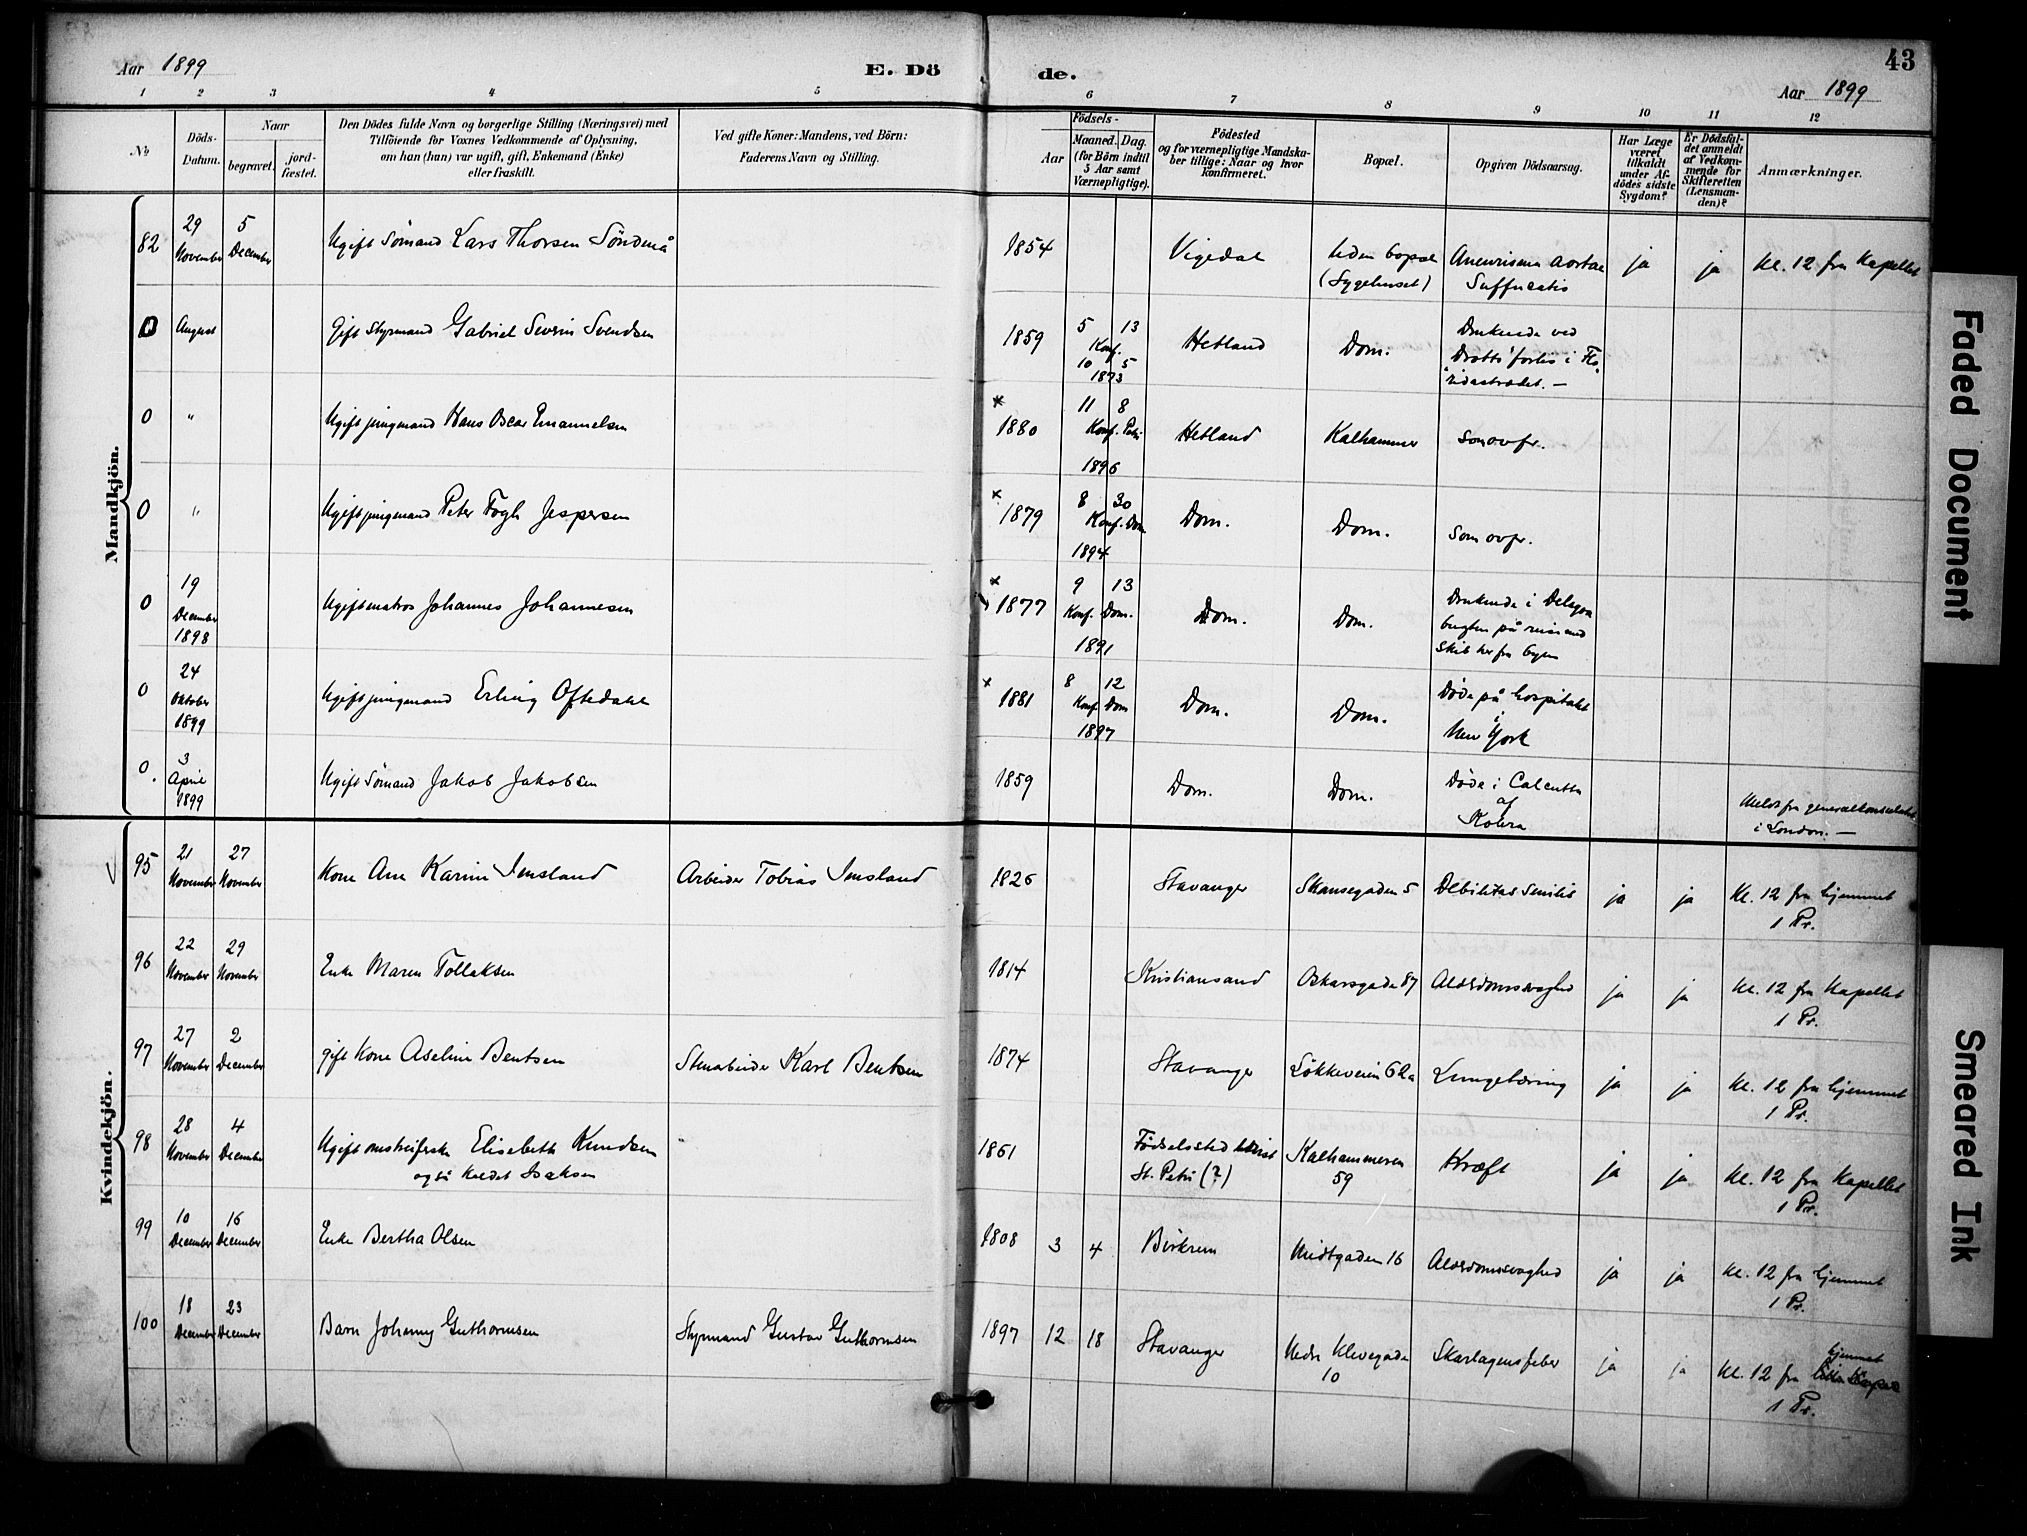 Aar 1899
E. Dö
de.
Aar 1899
43
1 2 3 4 5 6 7 8 9 10 11 12
№
Döds-
Datum.
Naar
begravet.
jord-
fæstet.
Den Dödes fulde Navn og borgerlige Stilling (Næringsvei) med
Tilföiende for Voxnes Vedkommende af Oplysning,
om han (hun) var ugift, gift, Enkemand (Enke)
eller fraskilt.
Ved gifte Koner: Mandens, ved Börn:
Faderens Navn og Stilling.
Födsels-
Aar
Maaned. Dag.
(for Börn indtil
5 Aar samt
Værnepligtige).
Födested
og for værnepligtige Mandska-
ber tillige: Naar og hvor
konfirmeret.
Bopæl.
Opgiven Dödsaarsag.
Har Læge
været
tilkaldt
under Af-
dödes sidste
Sygdom?
Er Dödsfal-
det anmeldt
af Vedkom-
mende for
Skifteretten
(Lensman-
den)?
Anmærkninger.
Mandkjön.
82
29
November
5
December
Ugift Sømand Lars Thorsen
1854
Vigedal
Uden bopæl
(Sygehuset)
Aneurisma Aortae
Suffucatio
ja
ja
Kl. 12 fra Kapellet
0
August
Gift Styrmand Gabriel Severin Svendsen
1859
5 13
Konf.
10 5
1873
Hetland
Dom.
Druknede ved
"Drotts" forlis i Flo-
ridastrædet. —
0
"
Ugift jungmand Hans Oscar Emanuelsen
x
1880
11 8
Konf. Petri
1896
Hetland
Kalhammer
som ovfr.
0
"
Ugift jungmand Peter Fogh Jespersen
x
1879
8 30
Konf. Dom
1894
Dom.
Dom.
som ovfr.
0
19
December
1898
Ugift matros Johannes Johannesen
x
1877
9 13
Konf. Dom.
1891
Dom.
Dom.
Druknede i Delagoa
bugten på reise med
Skib her fra byen
0
24
Oktober
1899
Ugift jungmand Erling Oftedahl
x
1881
8 12
Konf. Dom
1897
Dom.
Dom.
Døde på hospitalet
i
New York
0.
3
April
1899
Ugift Sømand Jakob Jakobsen
1859
Dom.
Dom.
Døde i Calcutta
af
Kolera
Meldt fra generalkonsulatet
i London. —
Kvindekjön.
95
21
November
27
November
Kone Ane Karine Imsland
Arbeider Tobias Imsland
1826
Stavanger
Skansegaden 5
Debilitas Senilis
ja
ja
Kl. 12 fra hjemmet
1 Pr.
96
22
November
29
November
Enke Maren Tollaksen
1814
Kristiansand
Oskarsgade 87
Alderdomssvaghed
ja
ja
Kl. 12 fra Kapellet
1 Pr.
97
27
November
2
December
gift Kone Aseline Bentsen
Stenarbeider Karl Bentsen
1874
Stavanger
Løkkeveien 62a
Lungetæring
ja
ja
Kl. 12 fra hjemmet
1 Pr.
98
28
November
4
December
Ugift omstreiferske Elisabeth Knudsen
også kaldet Isaksen
1861
Fødselssted ubevist
St. Petri (?)
Kalhammeren
59
Kræft
ja
ja
Kl. 12 fra Kapellet
1 Pr.
99
10
December
16
December
Enke Bertha Olsen
1808
3 4
Birkrem
Midtgaden 16
Alderdomssvaghed
ja
ja
Kl. 12 fra hjemmet
1 Pr.
100
18
December
23
December
Barn Johanny Guthormsen
Styrmand Gustav Guthormsen
1897
12 18
Stavanger
Nedre Klevegade
10
Skarlagensfeber
ja
ja
hjemmet
Kl. 12 fra
1 Pr.
Faded Document
Smeared Ink